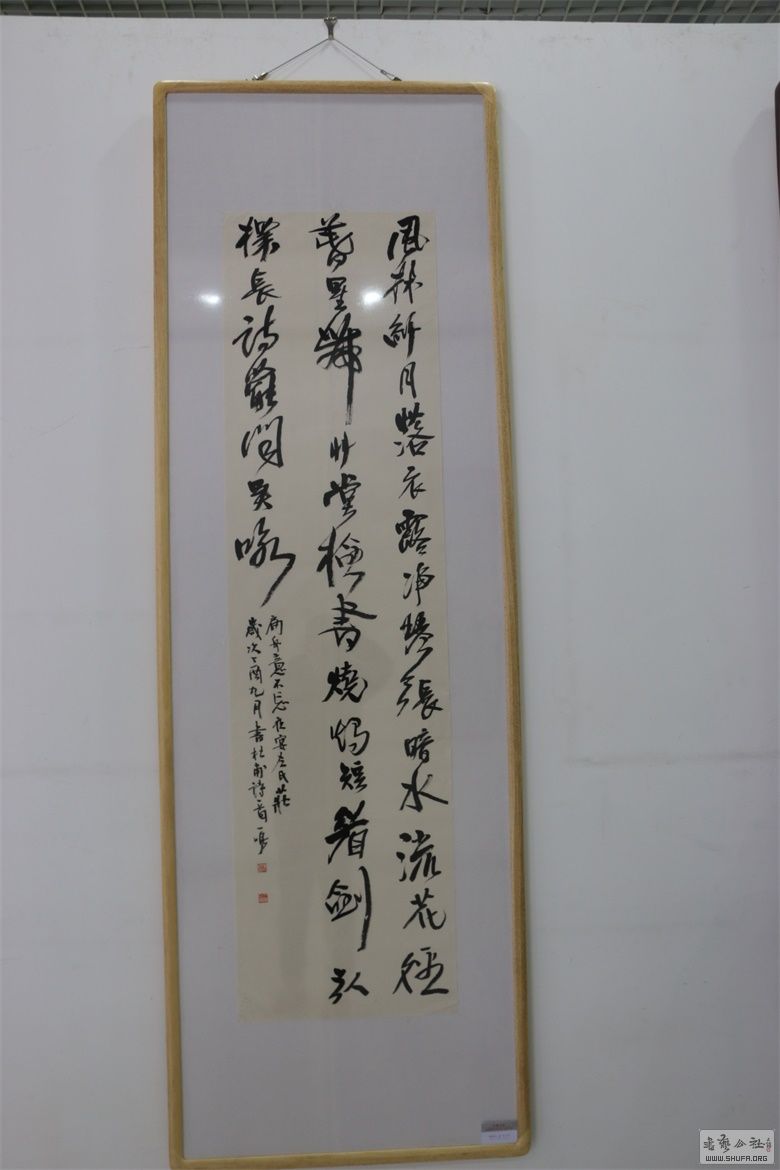 風林纖月落衣露净琴張暗水流花徑
春星帶艸堂檢書燒燭短看劍引
杯長詩罷聞吳咏
扁舟意不忘夜宴左氏莊
歲次丁酉九月書杜甫詩首
書藝公社
WWW.SHUFA.ORG